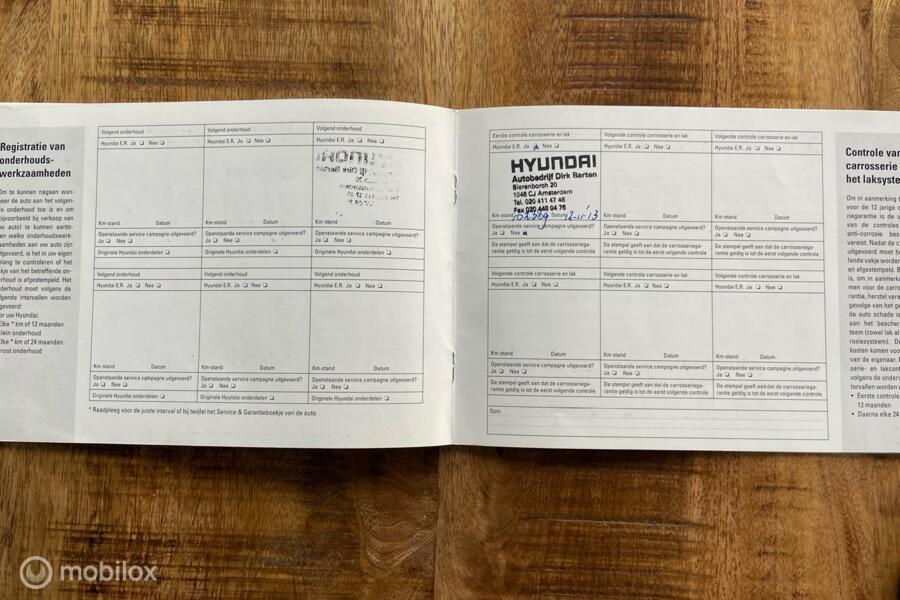 Registratie van
onderhouds-
werkzaamheden
Om te kunnen nagaan wan-
neer de auto aan het volgen-
de onderhoud toe is en om
bijvoorbeeld bij verkoop van
uw auto! te kunnen aanto-
nen welke onderhoudswerk-
zaamheden aan uw auto zijn
uitgevoerd, is het in uw eigen
belang te controleren of het
vakje van het betreffende on-
derhoud is afgestempeld. Het
onderhoud moet volgens de
volgende intervallen worden
uitgevoerd:
Voor uw Hyundai:
Elke * km of 12 maanden
klein onderhoud
Elke * km of 24 maanden
groot onderhoud
Volgend onderhoud Volgend onderhoud Volgend onderhoud
Hyundai E.R. Ja ❏ Nee ❏ Hyundai E.R. Ja ❏ Nee ❏ Hyundai E.R. Ja ❏ Nee ❏
Km-stand Datum Km-stand Datum Km-stand Datum
Openstaande service campagne uitgevoerd? Openstaande service campagne uitgevoerd? Openstaande service campagne uitgevoerd?
Ja ❏ Nee ❏ Ja ❏ Nee ❏ Ja ❏ Nee ❏
Originele Hyundai onderdelen ❏ Originele Hyundai onderdelen ❏ Originele Hyundai onderdelen ❏
Volgend onderhoud Volgend onderhoud Volgend onderhoud
Hyundai E.R. Ja ❏ Nee ❏ Hyundai E.R. Ja ❏ Nee ❏ Hyundai E.R. Ja ❏ Nee ❏
Km-stand Datum Km-stand Datum Km-stand Datum
Openstaande service campagne uitgevoerd? Openstaande service campagne uitgevoerd? Openstaande service campagne uitgevoerd?
Ja ❏ Nee ❏ Ja ❏ Nee ❏ Ja ❏ Nee ❏
Originele Hyundai onderdelen ❏ Originele Hyundai onderdelen ❏ Originele Hyundai onderdelen ❏
* Raadpleeg voor de juiste interval of bij twijfel het Service & Garantieboekje van de auto.
Eerste controle carrosserie en lak Volgende controle carrosserie en lak Volgende controle carrosserie en lak
Hyundai E.R. Ja Nee ❏ Hyundai E.R. Ja ❏ Nee ❏ Hyundai E.R. Ja ❏ Nee ❏
HYUNDAI
Autobedrijf Dirk Barten
Sierenborch 20
1046 CJ Amsterdam
Tel. 020 411 47 48
Fax 020 448 04 76
Km-stand Datum 12-11-13 Km-stand Datum Km-stand Datum
Openstaande service campagne uitgevoerd? Openstaande service campagne uitgevoerd? Openstaande service campagne uitgevoerd?
Ja ❏ Nee Ja ❏ Nee ❏ Ja ❏ Nee ❏
De stempel geeft aan dat de carrosseriega- De stempel geeft aan dat de carrosseriega- De stempel geeft aan dat de carrosseriega-
rantie geldig is tot de eerst volgende controle rantie geldig is tot de eerst volgende controle rantie geldig is tot de eerst volgende controle
Volgende controle carrosserie en lak Volgende controle carrosserie en lak Volgende controle carrosserie en lak
Hyundai E.R. Ja ❏ Nee ❏ Hyundai E.R. Ja ❏ Nee ❏ Hyundai E.R. Ja ❏ Nee ❏
Km-stand Datum Km-stand Datum Km-stand Datum
Openstaande service campagne uitgevoerd? Openstaande service campagne uitgevoerd? Openstaande service campagne uitgevoerd?
Ja ❏ Nee ❏ Ja ❏ Nee ❏ Ja ❏ Nee ❏
De stempel geeft aan dat de carrosseriega- De stempel geeft aan dat de carrosseriega- De stempel geeft aan dat de carrosseriega-
rantie geldig is tot de eerst volgende controle rantie geldig is tot de eerst volgende controle rantie geldig is tot de eerst volgende controle
Opm:
Controle van
carrosserie
het laksyste
Om in aanmerking t
voor de 12 jarige c
riegarantie is de u
van de controles
anti-corrosie bes
vereist. Nadat de c
uitgevoerd moet he
fende vakje worden
en afgestempeld. B
is, om in aanmerki
men voor de carros
rantie, herstel verei
gevolge van het ge
de auto schade is
aan het bescher
teem (zowel lak als
rosiesysteem). Da
kosten komen voor
van de eigenaar.
serie- en lakconf
volgens de onders
tervallen worden u
• Eerste controle
12 maanden
• Daarna elke 24
mobilox